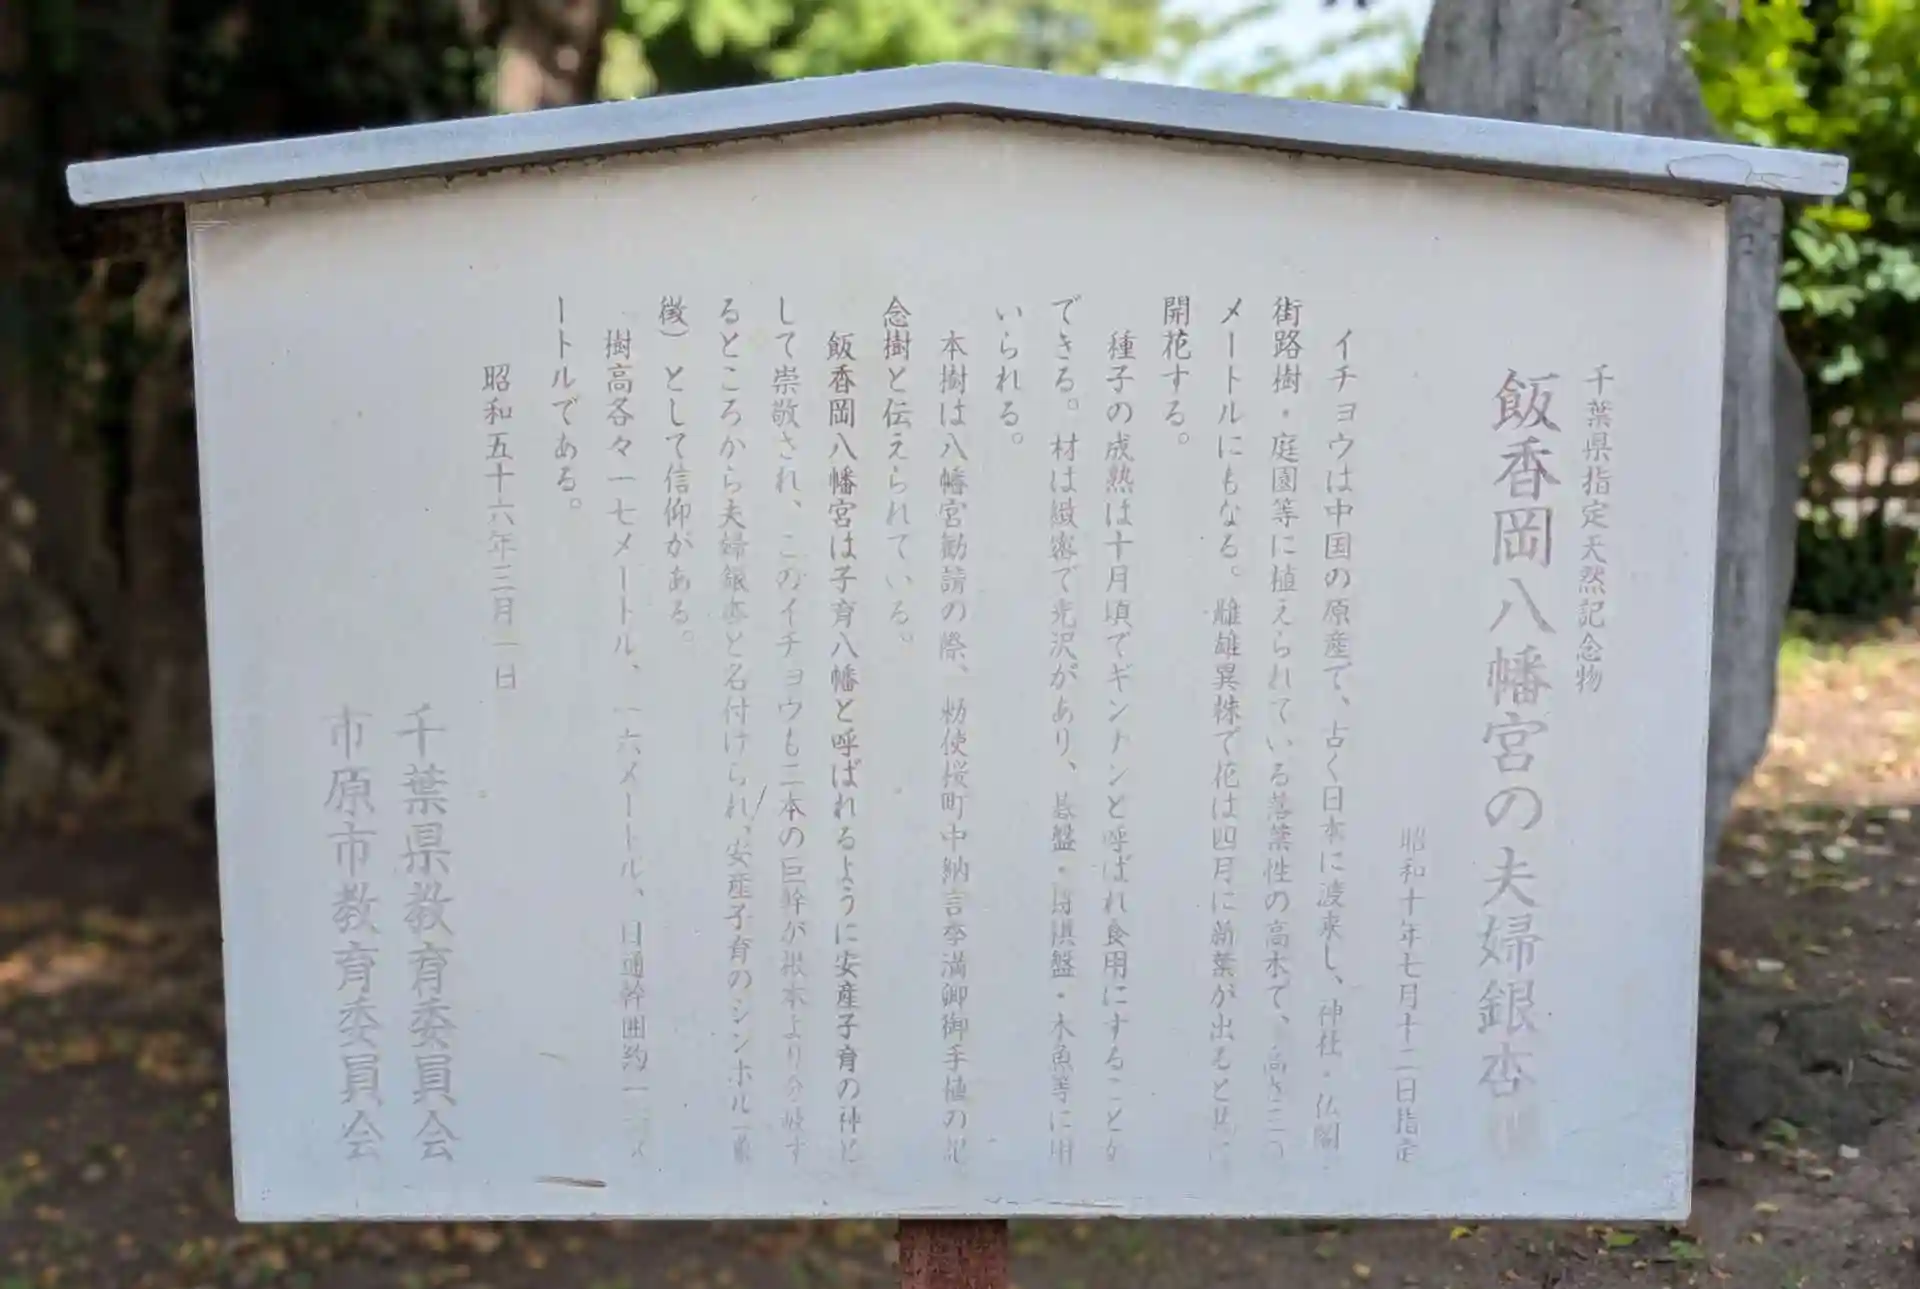 千葉県指定天然記念物
飯香岡八幡宮の夫婦銀杏
昭和十年七月十二日指定
イチョウは中国の原産で、古く日本に渡来し、神社・仏閣・
街路樹・庭園等に植えられている落葉性の高木で、高さ三〇
メートルにもなる。雌雄異株で花は四月に新葉が出ると共に
開花する。
種子の成熟は十月頃でギンナンと呼ばれ食用にすることが
できる。材は緻密で光沢があり、碁盤・将棋盤・木魚等に用
いられる。
本樹は八幡宮勧請の際、勅使桜町中納言季満卿御手植の記
念樹と伝えられている。
飯香岡八幡宮は子育八幡と呼ばれるように安産子育の神と
して崇敬され、このイチョウも二本の巨幹が根本より分岐す
るところから夫婦銀杏と名付けられ、安産子育のシンボル（象
徴）として信仰がある。
樹高各々一七メートル、一六メートル、目通幹囲約一一メ
ートルである。
昭和五十六年三月一日
千葉県教育委員会
市原市教育委員会